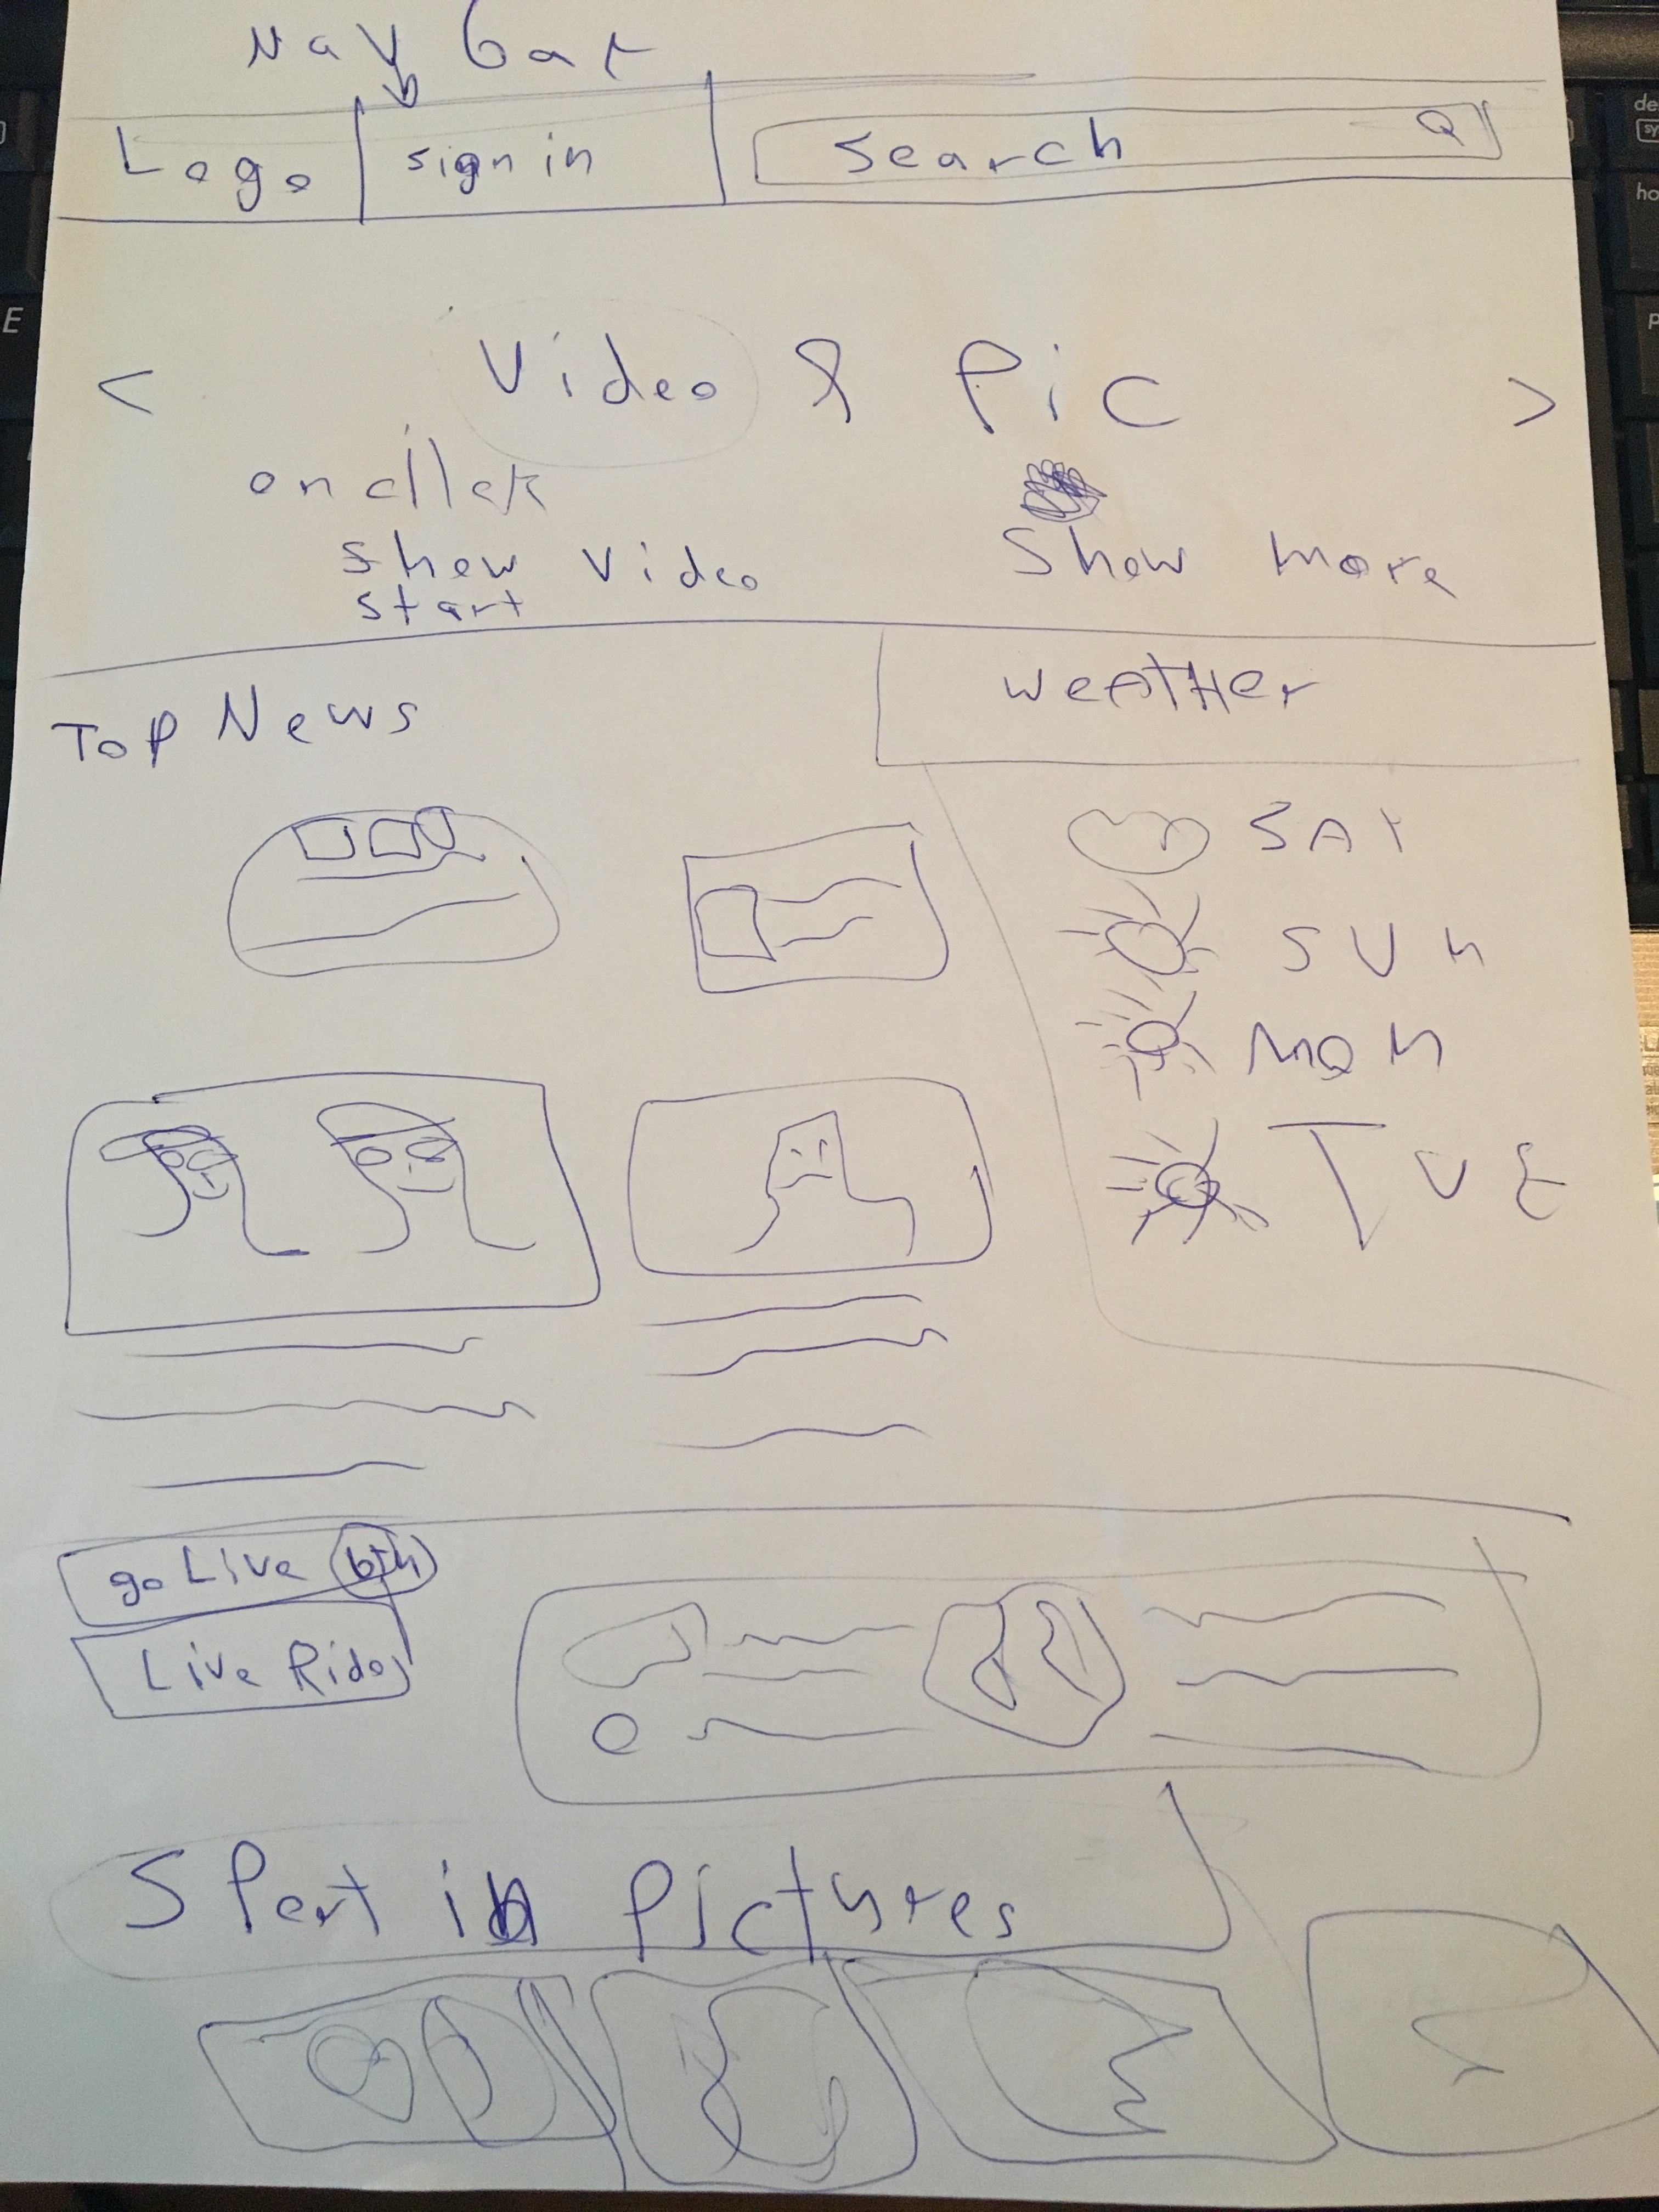 Nav bar
Logo
sign in
Search
< Video & Pic >
on click
show video
start
Show more
Top News
WeATHer
SAT
SUN
MON
TUE
go Live btn
Live Rides
Sport in Pictures